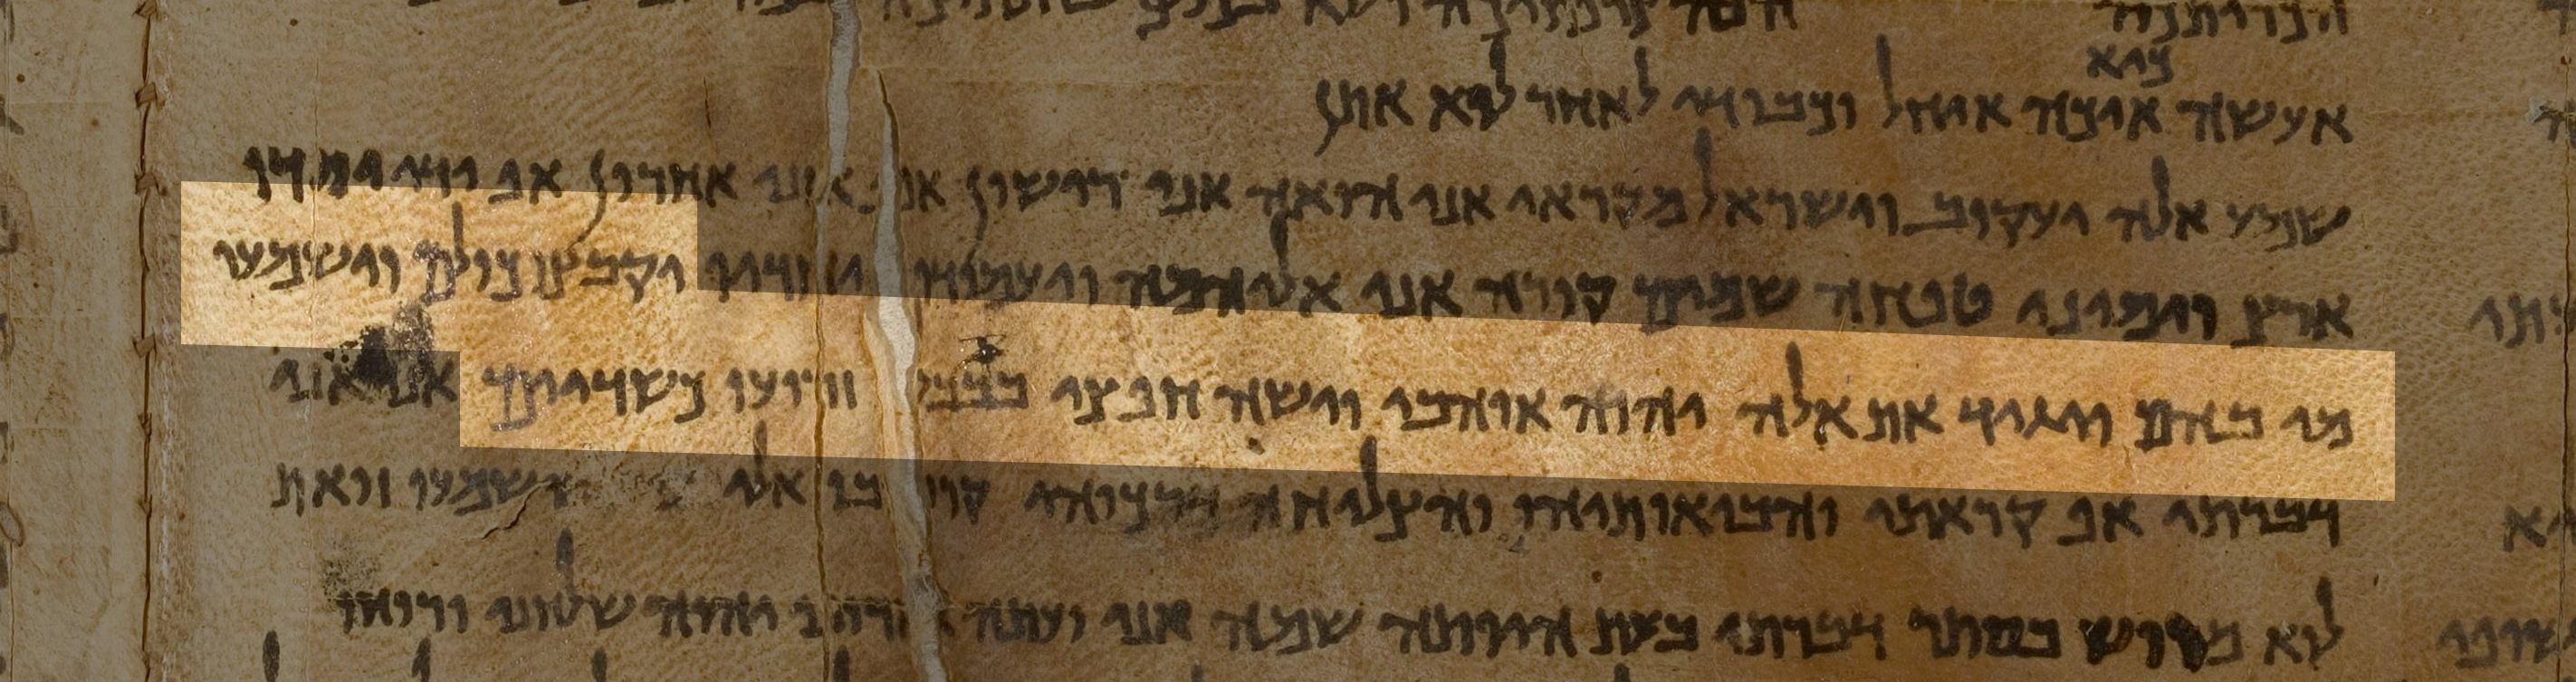 כיא
אעשה איכה איחל וכבודי לאחר לוא אתן
שמע אלה יעקוב וישראל מקראי אני הואה אני רישון אף אני אחרון אף ידי יסדה
ארץ וימיני טפחה שמים קורה אני אליהמה ויעמודו יחדיו יקבצו כולם וישמעו
מי בהם מגיד את אלה יהוה אוהבי וישה חפצי בבבל וזרועו כשדים אני אני
דברתי אף קראתי והביאותיהו והצליחה דרכיוהי קורבו אלי ושמעו זואת
לוא מרוש בסתר דברתי בעת היותה שמה אני ועתה אדוני יהוה שלחני ורוחו